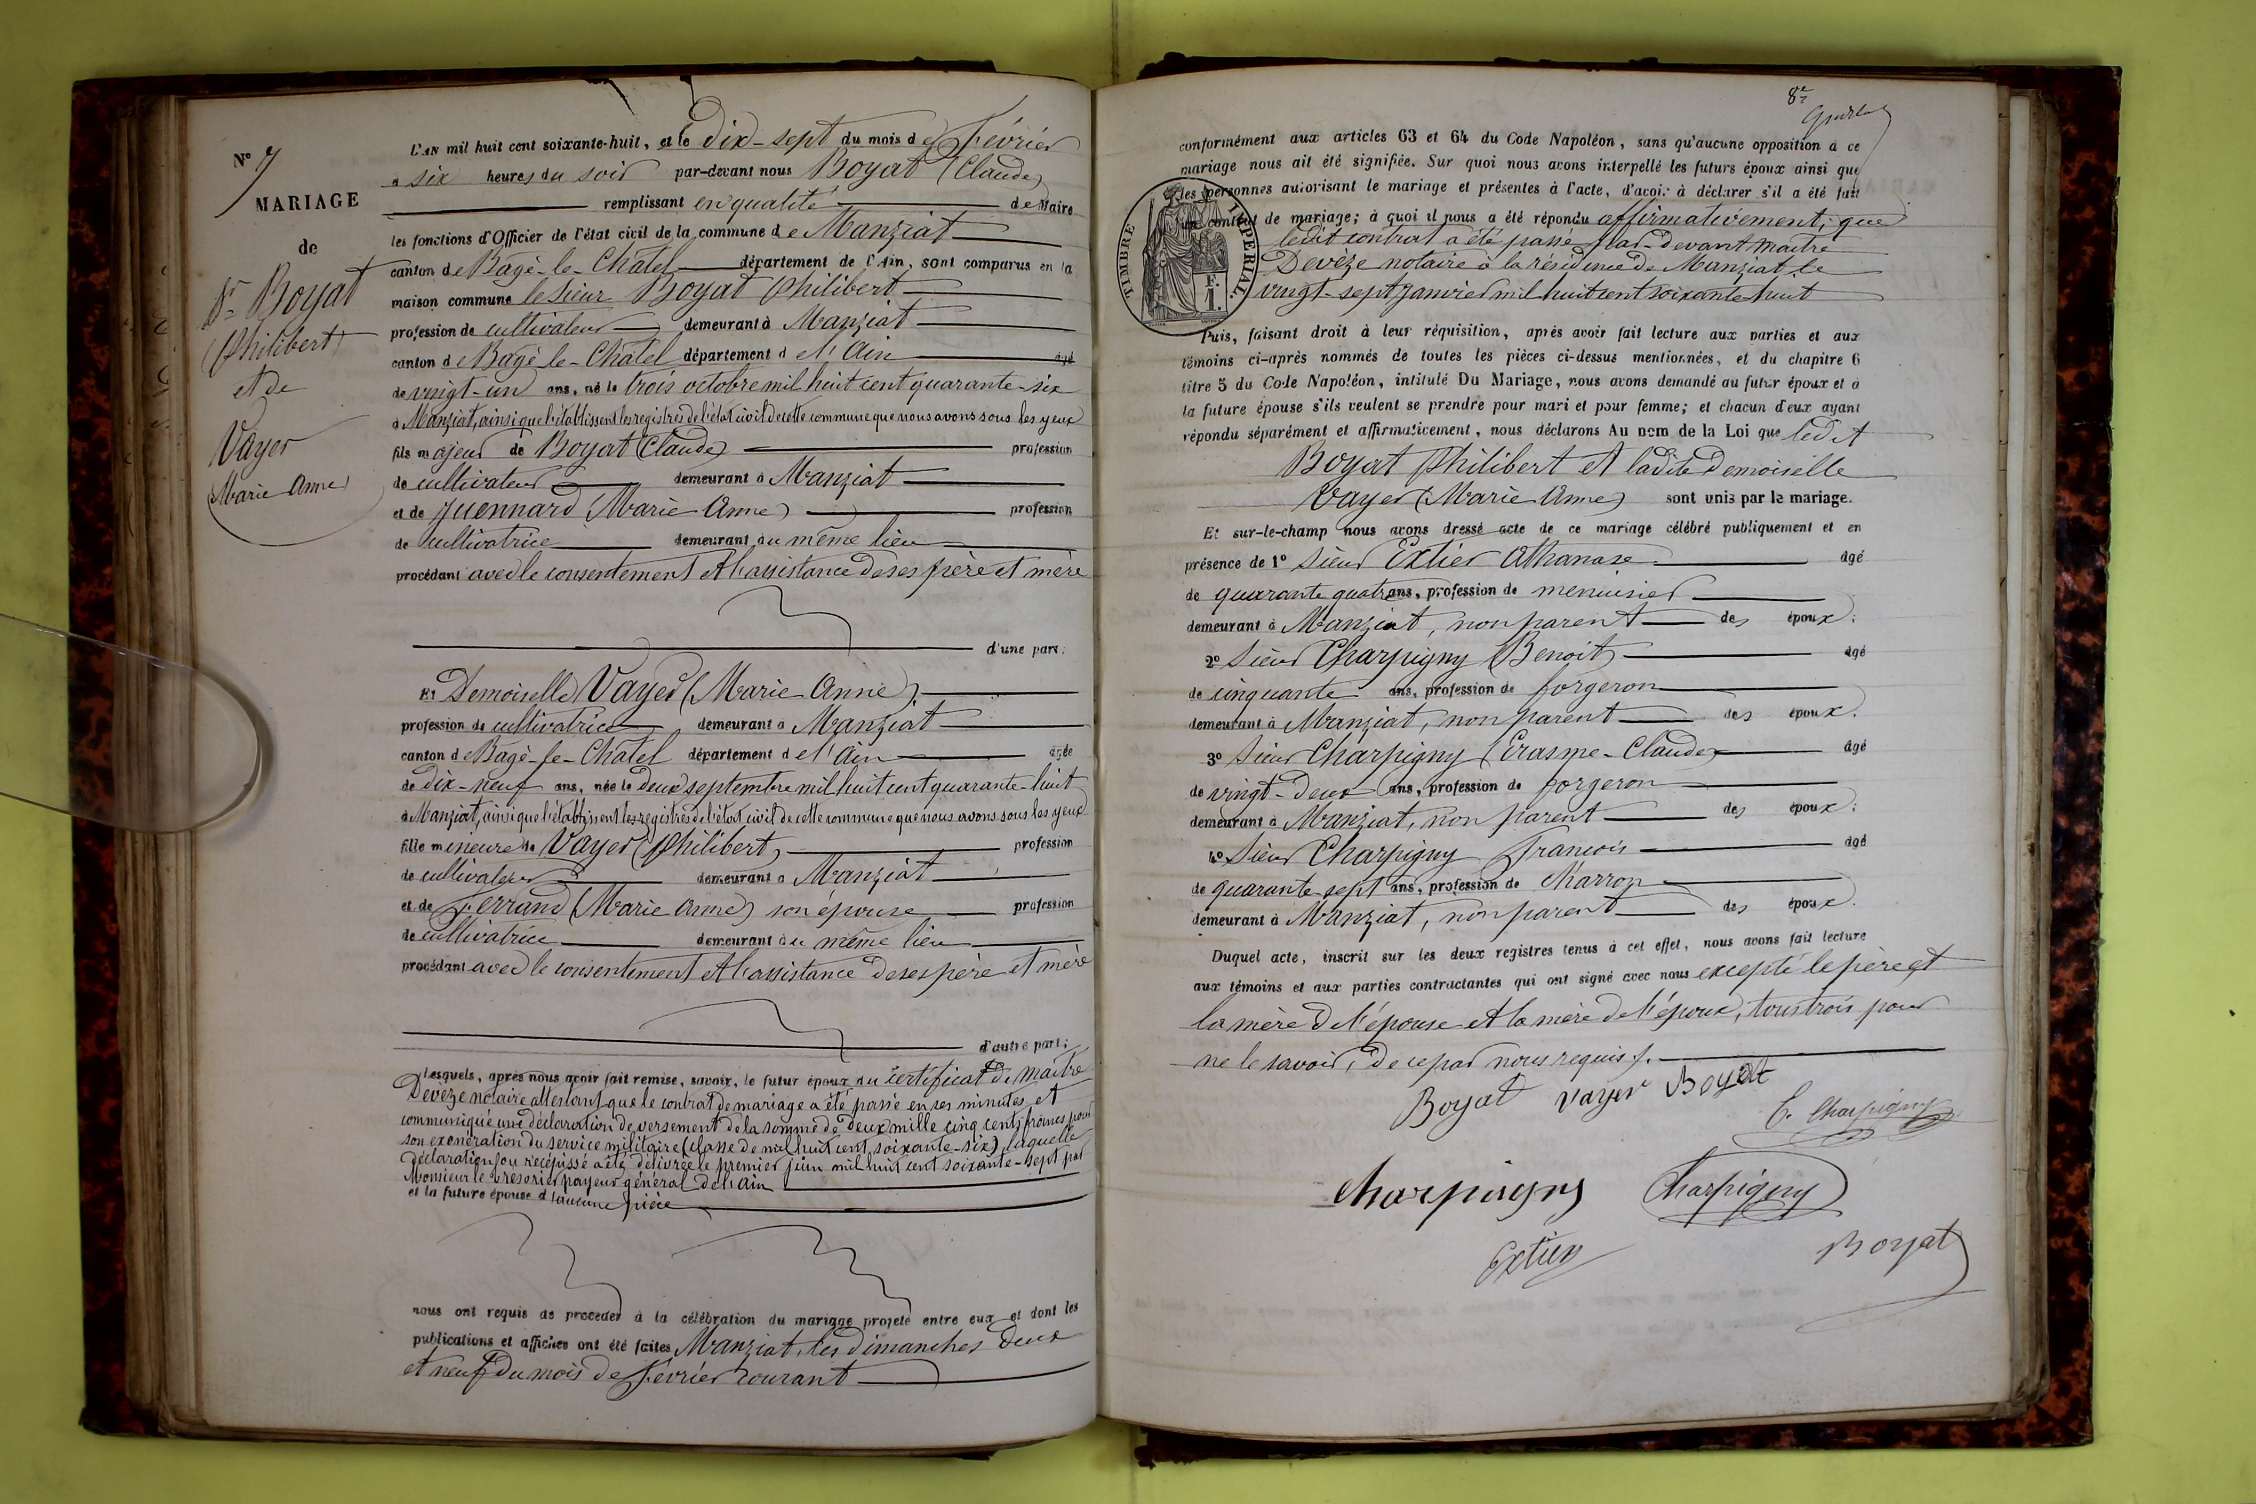 N° 7
MARIAGE
de
Sr Boyat
(Philibert)
et de
Vayer
(Marie Anne)
L'AN mil huit cent soixante-huit, et le dix-sept du mois de Février
a six heures du soir par-devant nous Boyat (Claude)
remplissant en qualité de Maire
les fonctions d'Officier de l'état civil de la commune de Manziat
canton de Bagé-le-Châtel département de l'Ain, sont comparus en la
maison commune le sieur Boyat Philibert
profession de cultivateur demeurant à Manziat
canton de Bagé-le-Châtel département de l'Ain âgé
de vingt-un ans, né le trois octobre mil huit cent quarante-six
à Manziat, ainsi que l'établissent les registres de l'état civil de cette commune que nous avons sous les yeux
fils majeur de Boyat (Claude) profession
de cultivateur demeurant à Manziat
et de Guennard (Marie Anne) profession
de cultivatrice demeurant au même lieu
procédant avec le consentement et l'assistance de ses père et mère
d'une part.
Et Demoiselle Vayer (Marie Anne)
profession de cultivatrice demeurant à Manziat
canton de Bagé-le-Châtel département de l'Ain âgée
de dix-neuf ans, née le deux septembre mil huit cent quarante-huit
à Manziat, ainsi que l'établissent les registres de l'état civil de cette commune que nous avons sous les yeux
fille mineure de Vayer (Philibert) profession
de cultivateur demeurant à Manziat
et de Ferrand (Marie Anne) son épouse profession
de cultivatrice demeurant au même lieu
procédant avec le consentement et l'assistance de ses père et mère
d'autre part;
Lesquels, après nous avoir fait remise, savoir, le futur époux du certificat de maître
Devèze notaire attestant que le contrat de mariage a été passé en ses minutes et
communiqué une déclaration de versement de la somme de deux mille cinq cents francs pour
son exonération du service militaire (classe de mil huit cent soixante-six) laquelle
déclaration ou récépissé a été délivrée le premier juin mil huit cent soixante-sept par
Monsieur le trésorier payeur général de l'Ain
et la future épouse d'aucune pièce
nous ont requis de procéder à la célébration du mariage projeté entre eux et dont les
publications et affiches ont été faites Manziat, les dimanches deux
et neuf du mois de Février courant
8e
conformément aux articles 63 et 64 du Code Napoléon, sans qu'aucune opposition à ce
mariage nous ait été signifiée. Sur quoi nous avons interpellé les futurs époux ainsi que
les personnes autorisant le mariage et présentes à l'acte, d'avoir à déclarer s'il a été fait
un contrat de mariage; à quoi il nous a été répondu affirmativement, que
ledit contrat a été passé par-devant maître
Devèze notaire à la résidence de Manziat le
vingt-sept janvier mil huit cent soixante huit
TIMBRE IMPERIAL.
F.
1
Puis, faisant droit à leur réquisition, après avoir fait lecture aux parties et aux
témoins ci-après nommés de toutes les pièces ci-dessus mentionnées, et du chapitre 6
titre 5 du Code Napoléon, intitulé Du Mariage, nous avons demandé au futur époux et à
la future épouse s'ils veulent se prendre pour mari et pour femme; et chacun d'eux ayant
répondu séparément et affirmativement, nous déclarons Au nom de la Loi que ledit
Boyat Philibert et ladite Demoiselle
Vayer (Marie Anne) sont unis par le mariage.
Et sur-le-champ nous avons dressé acte de ce mariage célébré publiquement et en
présence de 1° Sieur Extier Athanase âgé
de quarante quatre ans, profession de menuisier
demeurant à Manziat, non parent des époux.
2° Sieur Charpigny (Benoit) âgé
de cinquante ans, profession de forgeron
demeurant à Manziat, non parent des époux.
3° Sieur Charpigny (Erasme-Claude) âgé
de vingt-deux ans, profession de forgeron
demeurant à Manziat, non parent des époux.
4° Sieur Charpigny François âgé
de quarante sept ans, profession de charron
demeurant à Manziat, non parent des époux.
Duquel acte, inscrit sur les deux registres tenus à cet effet, nous avons fait lecture
aux témoins et aux parties contractantes qui ont signé avec nous excepté le père et
la mère de l'épouse et la mère de l'époux, tous trois pour
ne le savoir, de ce par nous requis.
Boyat Vayer Boyat
C. Charpigny
Charpigny Charpigny
Extier
Boyat